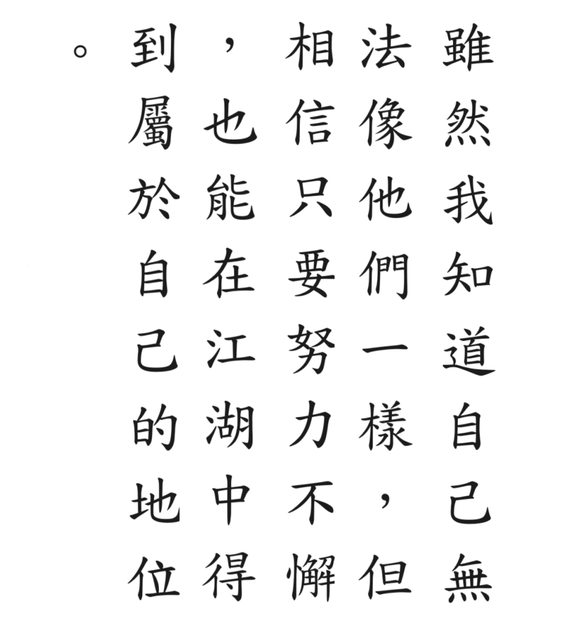 雖然我知道自己無
法像他們一樣，但
相信只要努力不懈
，也能在江湖中得
到屬於自己的地位
。